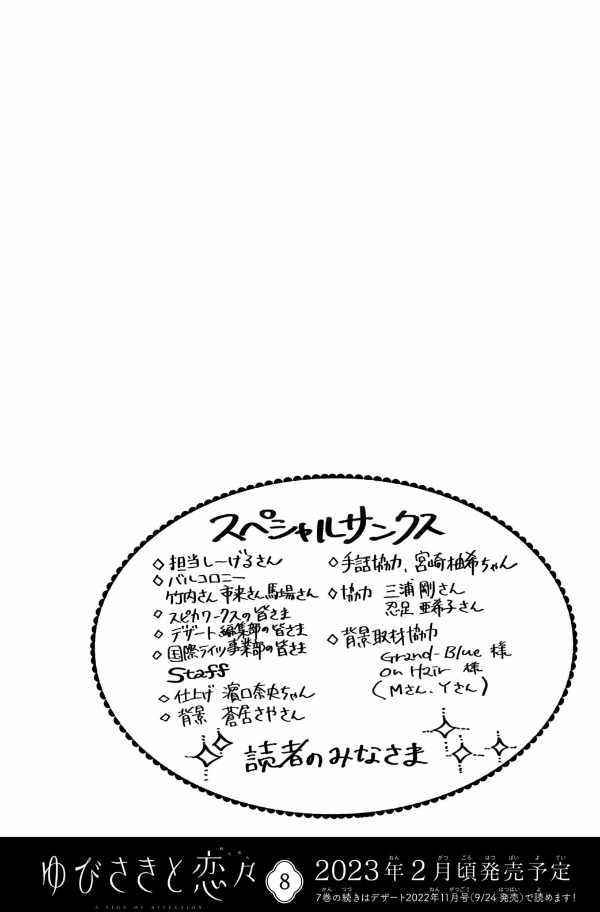 スペシャルサンクス
◇担当しーげるさん
◇バルコロニー
竹内さん 市来さん 馬場さん
◇スピカワークスの皆さま
◇デザート編集部の皆さま
◇国際ライツ事業部の皆さま
Staff
◇仕上げ 濵口奈央ちゃん
◇背景 蒼居さやさん
◇手話協力、宮崎柚希ちゃん
◇協力 三浦剛さん
忍足亜希子さん
◇背景取材協力
Grand-Blue 様
On Hair 様
(Mさん、Yさん)
読者のみなさま
ゆびさきと恋々
れんれん
A SIGN OF AFFECTION
8
2023年2月頃発売予定
ねん がつ ごろ はつ ばい よ てい
7巻の続きはデザート2022年11月号(9/24発売)で読めます!
かん つづ ねん がつごう はつばい よ